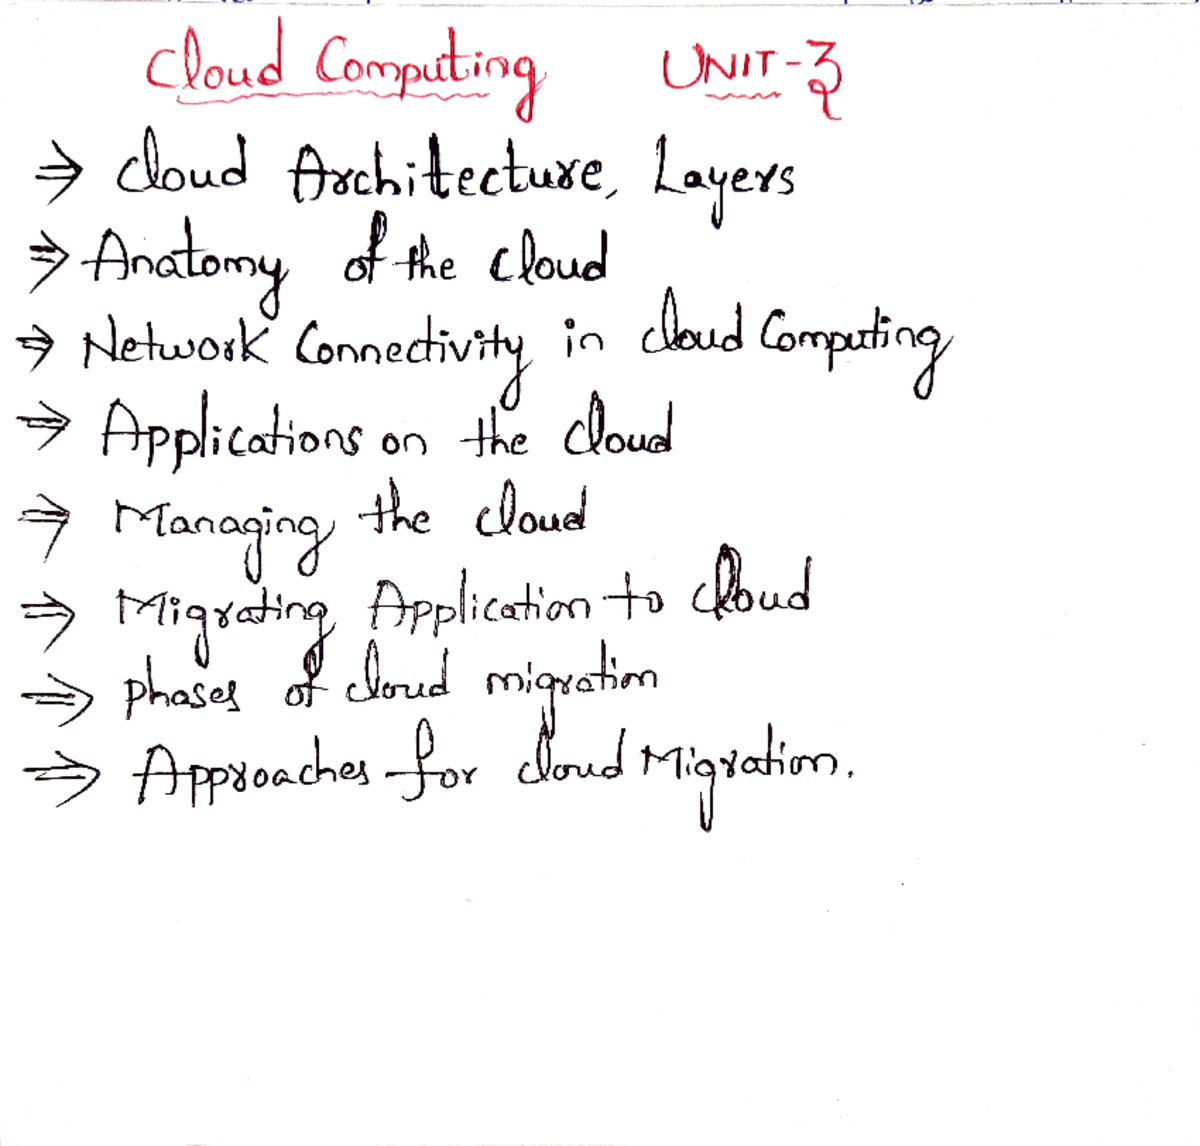 Cloud Computing UNIT-3
⇒ Cloud Architecture, Layers
⇒ Anatomy of the cloud
⇒ Network Connectivity in cloud Computing
⇒ Applications on the cloud
⇒ Managing the cloud
⇒ Migrating Application to cloud
⇒ phases of cloud migration
⇒ Approaches for cloud Migration.